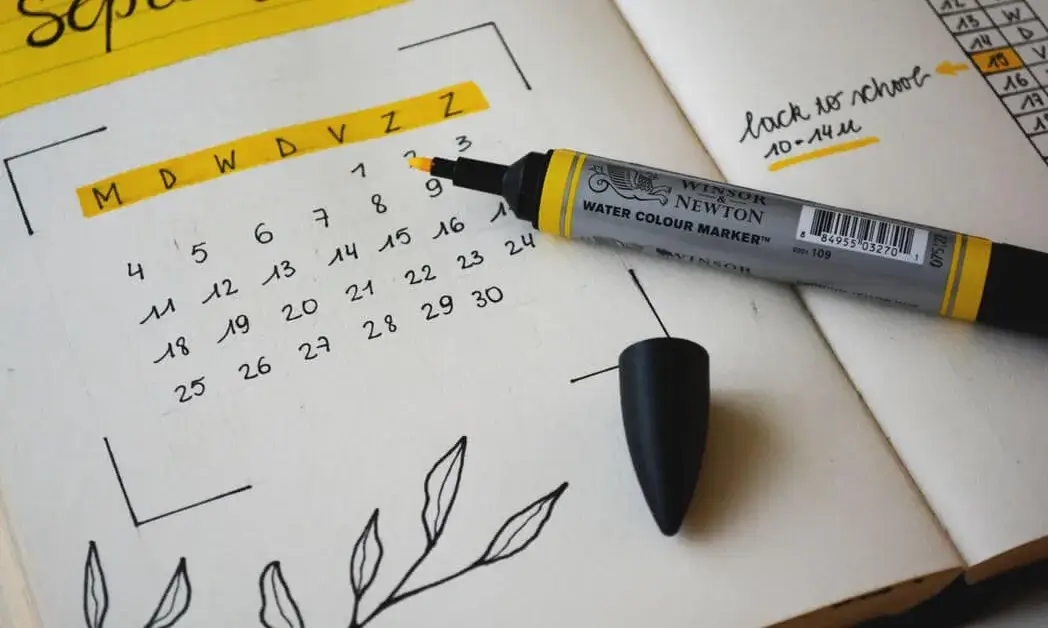 Sep
M D W D V Z Z
1 2 3
4 5 6 7 8 9
11 12 13 14 15 16
18 19 20 21 22 23 24
25 26 27 28 29 30
WINSOR
&
NEWTON
WATER COLOUR MARKER™
8 84955 03270 1
109
WINSOR
back to school
10-14u
12
13 W
14 D
15 V
16
17